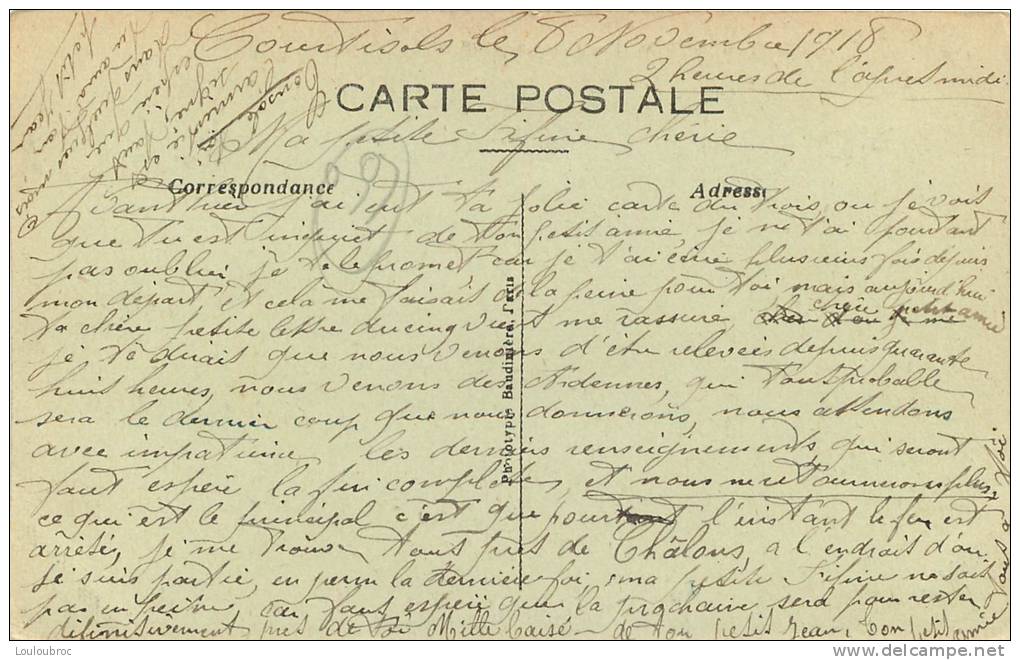 Courtisols le 8 Novembre 1918
2 heures de l'après midi
CARTE POSTALE
Ma petite Fifine chérie
Correspondance
Adresse
J'ai reçu ta jolie carte du trois, ou je vois
que tu est inquiet de ton petit amie je ne t'ai pourtant
pas oublier je te le promet, car je t'ai écrie plusieurs fois depuis
mon départ, et celà me faisait de la peine pour toi mais aujourd'hui
ta chère petite lettre du cinq vient me rassuré, chère petit amie
je te dirait que nous venons d'être relevées depuis quarante
huit heures, nous venons des Ardennes, qui faut probable
sera le dernier coup que nous donnerons, nous attendons
avec impatience les derniers renseignements, qui seront
faut espéré la fin complete, et nous ne retournerons plus,
ce qui est le principal c'est que pour l'instant le feu est
arrêté, je me trouve tout près de Châlons, a l'endrait d'ou
je suis partie, en perm la dernière foi, ma petite Fifine ne soit
pas en peine, car faut espéré que la prochaine sera pour rester
définitivement près de toi Mille baisé de ton petit Jean, ton petit
amie
Tous a Toi
Phototypie Baudinière, Paris
Louloubroc
Delcampe.net